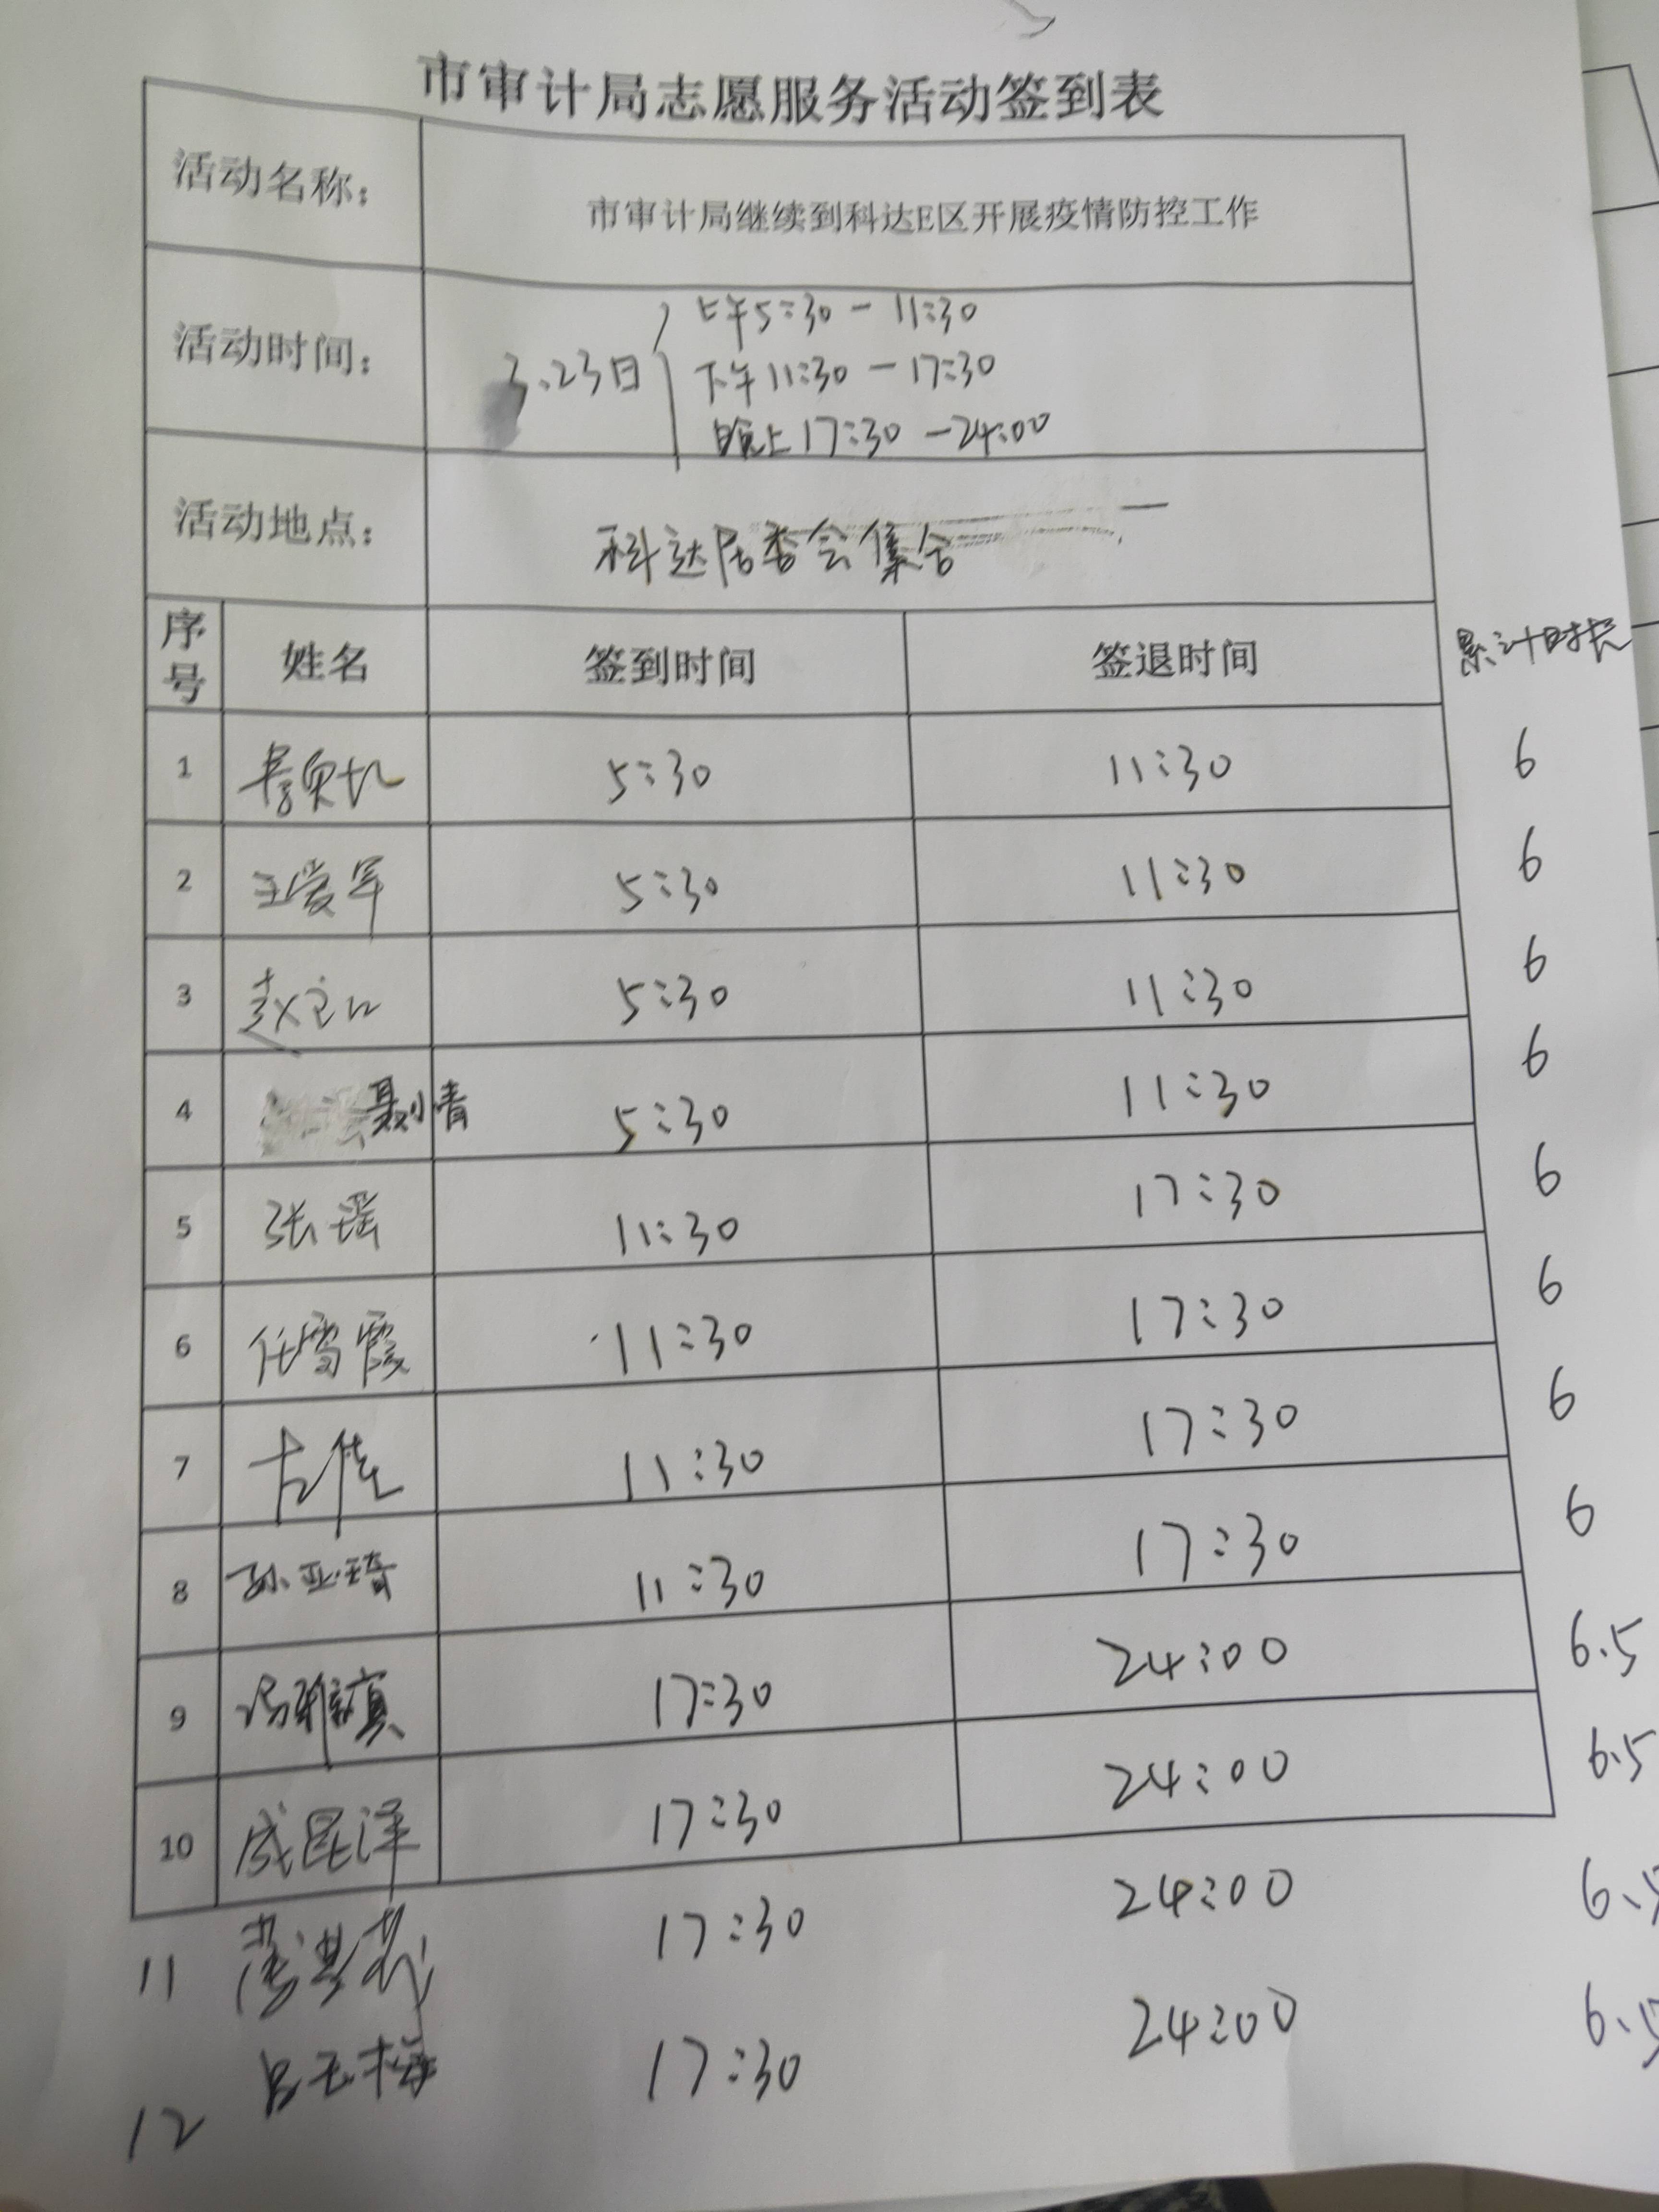 市审计局志愿服务活动签到表
活动名称: 市审计局继续到科达E区开展疫情防控工作
活动时间: 3.23日 上午5:30-11:30
下午11:30-17:30
晚上17:30-24:00
活动地点: 科达居委会集合
序号 姓名 签到时间 签退时间 累计时长
1 5:30 11:30 6
2 王爱军 5:30 11:30 6
3 赵 5:30 11:30 6
4 聂小倩 5:30 11:30 6
5 张瑶 11:30 17:30 6
6 任雪霞 11:30 17:30 6
7 11:30 17:30 6
8 孙亚琦 11:30 17:30 6
9 冯雅真 17:30 24:00 6.5
10 成昆洋 17:30 24:00 6.5
11 17:30 24:00 6.5
12 吕玉梅 17:30 24:00 6.5